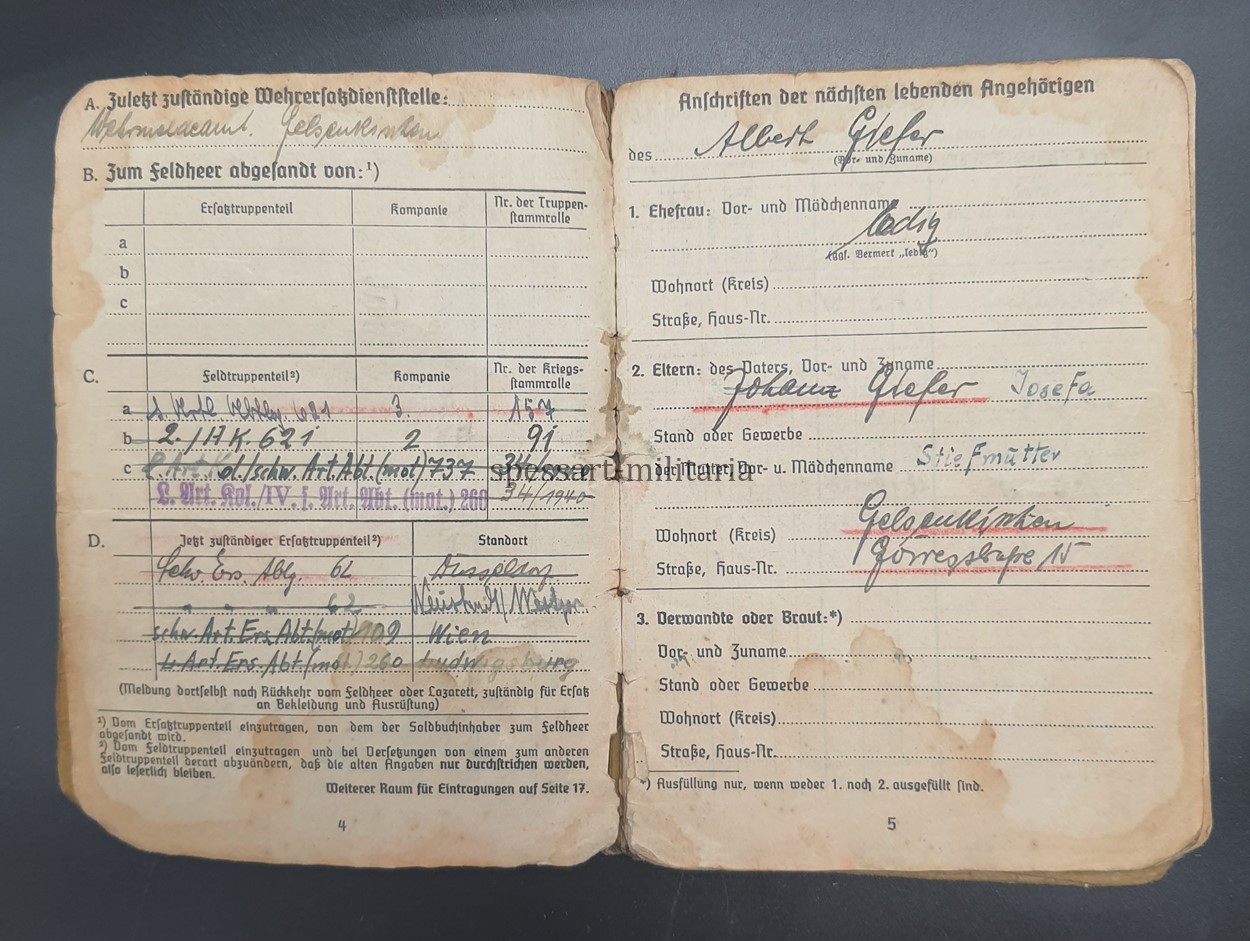 A. Zuletzt zuständige Wehrersatzdienststelle:
Wehrmeldeamt. Gelsenkirchen
B. Zum Feldheer abgesandt von:¹)
Ersatztruppenteil Kompanie Nr. der Truppenstammrolle
a
b
c
C. Feldtruppenteil²) Kompanie Nr. der Kriegsstammrolle
a 621 3. 157
b 2./ 621 2 91
c schw. Art. Abt. (mot) 737 34/
L. Art. Kol./IV. s. Art. Abt. (mot.) 260 34/1940
D. Jetzt zuständiger Ersatztruppenteil²) Standort
Schw. Ers. 62 Düsseldorf
" " " 62
schw. Art. Ers. Abt. (mot) 109 Wien
Art. Ers. Abt. (mot.) 260 Ludwigsburg
(Meldung dortselbst nach Rückkehr vom Feldheer oder Lazarett, zuständig für Ersatz
an Bekleidung und Ausrüstung)
¹) Vom Ersatztruppenteil einzutragen, von dem der Soldbuchinhaber zum Feldheer
abgesandt wird.
²) Vom Feldtruppenteil einzutragen und bei Versetzungen von einem zum anderen
Feldtruppenteil derart abzuändern, daß die alten Angaben nur durchstrichen werden,
also leserlich bleiben.
Weiterer Raum für Eintragungen auf Seite 17.
4
Anschriften der nächsten lebenden Angehörigen
des Albert Giefer
(Vor- und Zuname)
1. Ehefrau: Vor- und Mädchenname
ledig
(ggf. Vermerk „ledig")
Wohnort (Kreis)
Straße, Haus-Nr.
2. Eltern: des Vaters, Vor- und Zuname
Johann Giefer Josefa
Stand oder Gewerbe
der Mutter, Vor- u. Mädchenname Stiefmutter
Wohnort (Kreis) Gelsenkirchen
Straße, Haus-Nr. Görresstraße 15
3. Verwandte oder Braut:*)
Vor- und Zuname
Stand oder Gewerbe
Wohnort (Kreis)
Straße, Haus-Nr.
*) Ausfüllung nur, wenn weder 1. noch 2. ausgefüllt sind.
5
spessart-militaria